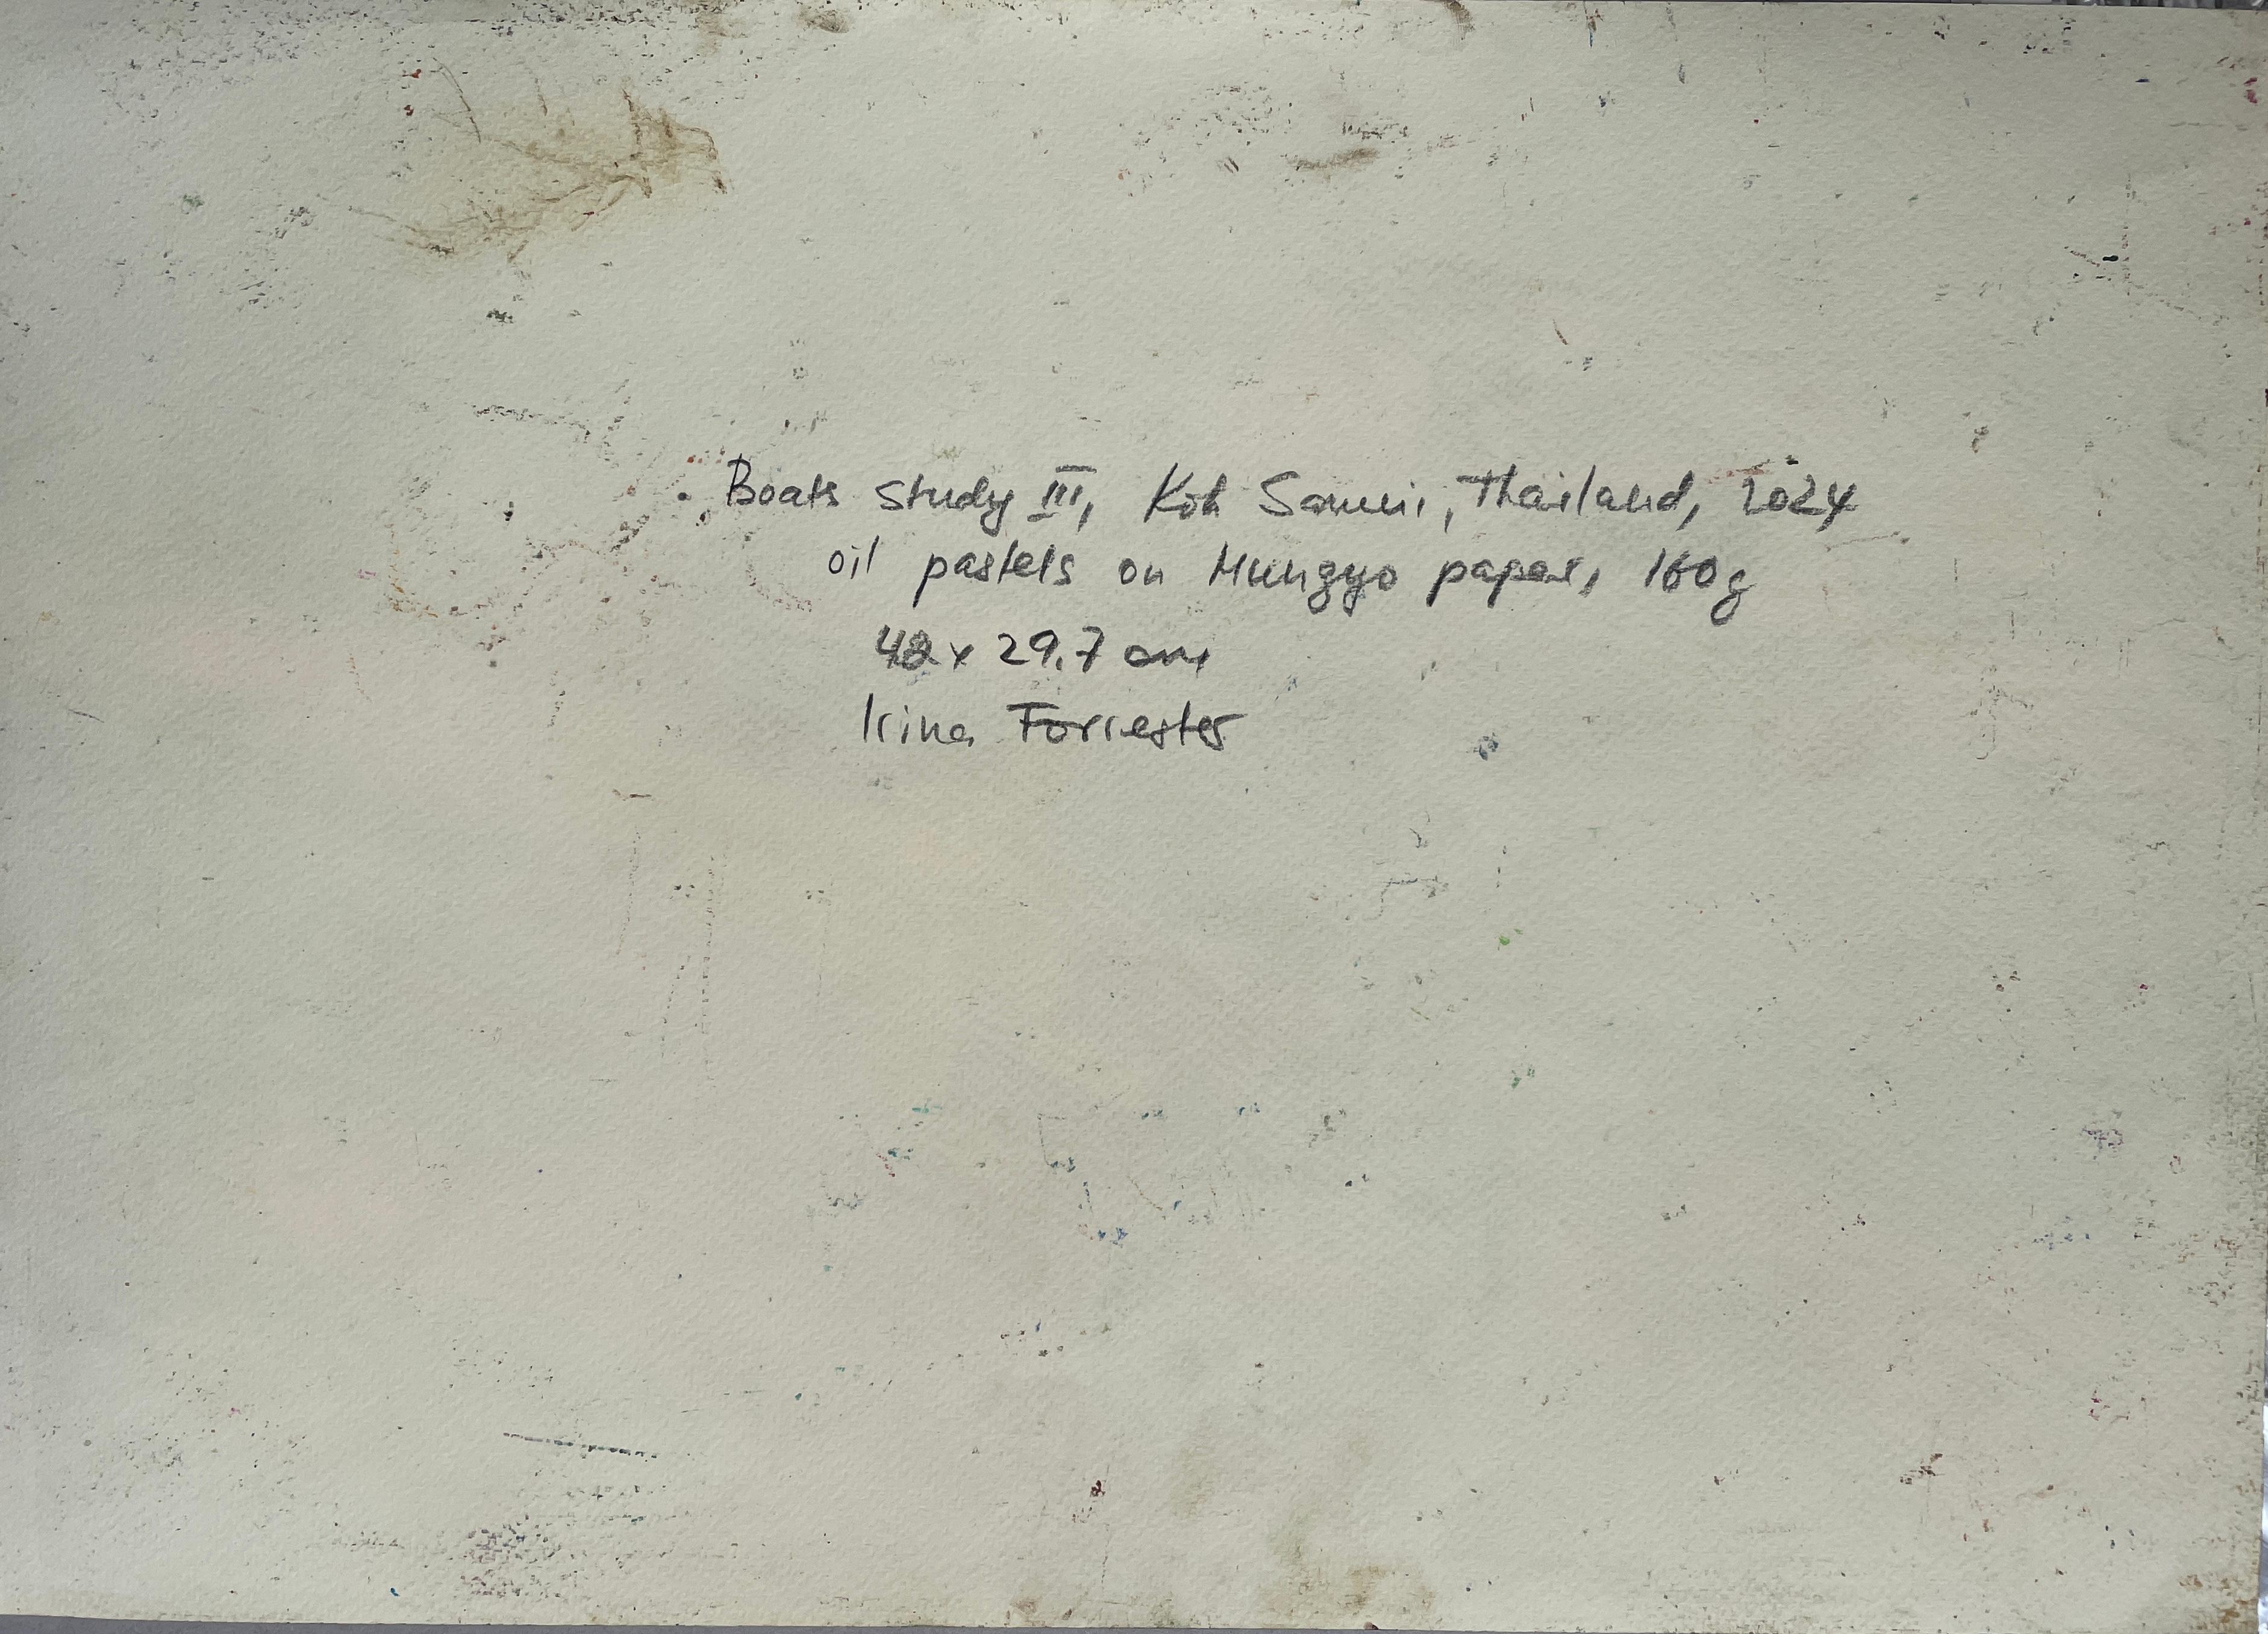 Boats study III, Koh Samui, Thailand, 2024
oil pastels on Mungyo paper, 160g
42 x 29,7 cm
Irina Forrester